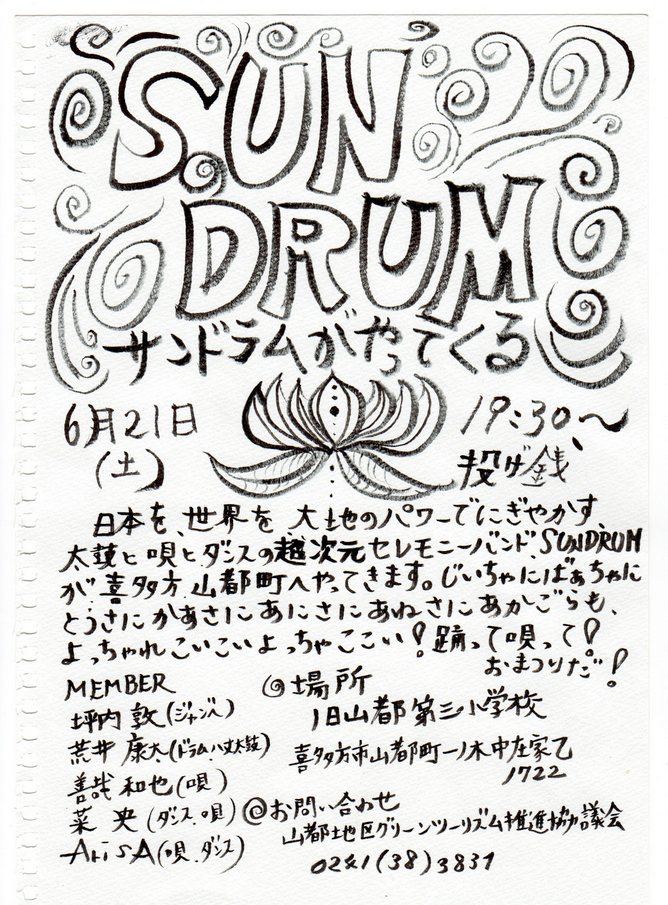 SUN
DRUM
サンドラムがやってくる
6月21日
(土)
19:30〜
投げ銭
日本を、世界を 大地のパワーでにぎやかす、
太鼓と唄とダンスの超次元セレモニーバンドSUNDRUM
が喜多方山都町へやってきます。じいちゃにばあちゃに
とうさにかあさにあにさにあねさにあかごらも、
よっちゃれこいこいよっちゃここい!踊って唄って!
おまつりだ!
MEMBER
坪内 敦(ジャンベ)
荒井 康太(ドラム、八丈太鼓)
善哉 和也(唄)
菜 央(ダンス、唄)
ArisA(唄、ダンス)
@場所
旧山都第三小学校
喜多方市山都町一ノ木中在家乙
1722
@お問い合わせ
山都地区グリーンツーリズム推進協議会
0241(38)3831